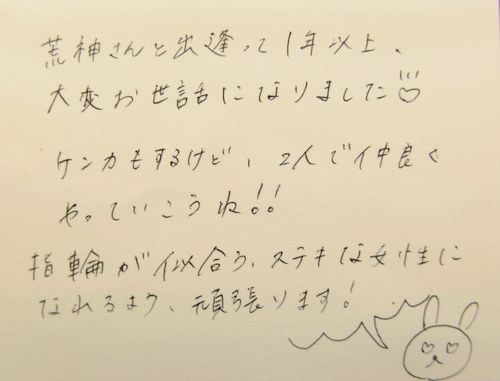 荒神さんと出逢って1年以上、
大変お世話になりました♡
ケンカもするけど、2人で仲良く
やっていこうね!!
指輪が似合う、ステキな女性に
なれるよう、頑張ります!